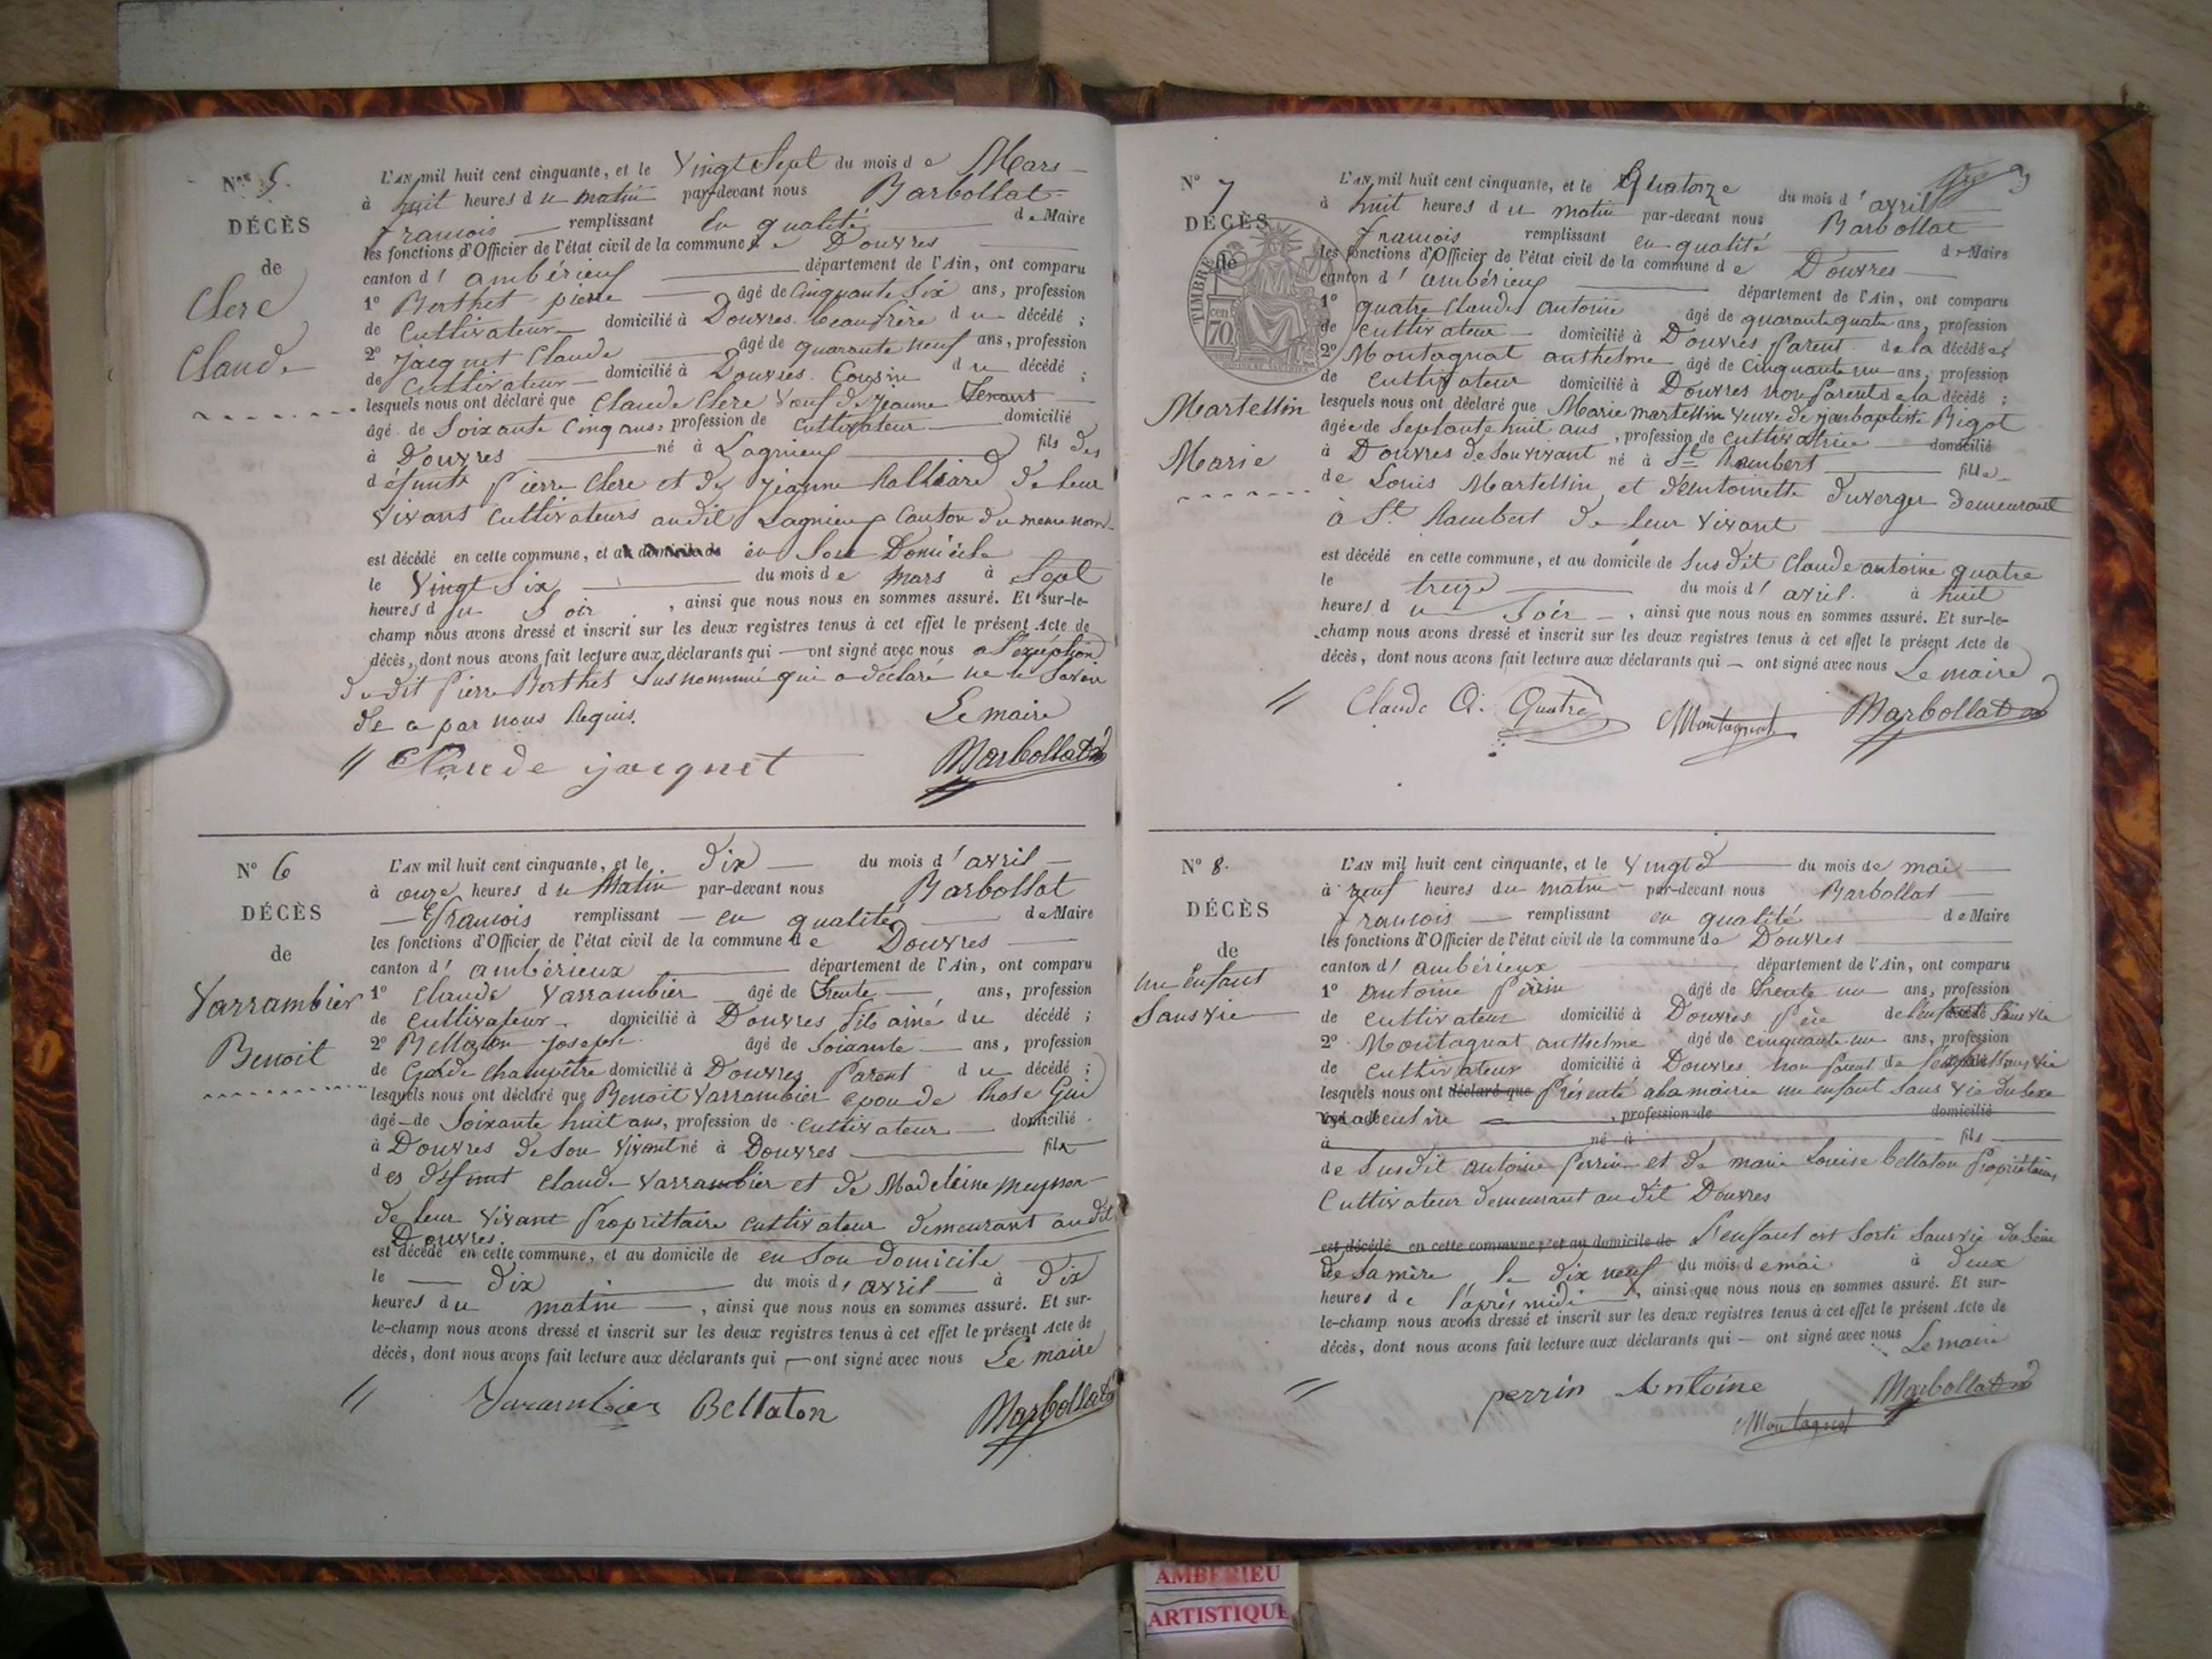 Nos 5.
DÉCÈS
de
Clere
Claude
L'AN mil huit cent cinquante, et le Vingt Sept du mois de Mars
à huit heures du matin par-devant nous Barbollat
francois remplissant en qualité de Maire
les fonctions d'Officier de l'état civil de la commune de Douvres
canton d' ambérieux département de l'Ain, ont comparu
1° Berthet pierre âgé de Cinquante Six ans, profession
de Cultivateur domicilié à Douvres. beaufrère du décédé ;
2° Jacquet Claude âgé de quarante neuf ans, profession
de Cultivateur domicilié à Douvres. Cousin du décédé ;
lesquels nous ont déclaré que Claude Clere Veuf de Jeanne
âgé de Soixante Cinq ans, profession de Cultivateur domicilié
à Douvres né à Lagnieux fils des
défunts Pierre Clere et de Jeanne de leur
vivant Cultivateurs audit Lagnieux Canton du meme nom
est décédé en cette commune, et au domicile de en Son Domicile
le Vingt Six du mois de Mars à Sept
heures du Soir, ainsi que nous nous en sommes assuré. Et sur-le-
champ nous avons dressé et inscrit sur les deux registres tenus à cet effet le présent Acte de
décès, dont nous avons fait lecture aux déclarants qui ont signé avec nous a l'exception
dudit Pierre Berthet Susnommé qui a déclaré ne le Savoir
de ce par nous Requis.
Le maire
Claude jacquet Barbollat
N° 6
DÉCÈS
de
Varrambier
Benoit
L'AN mil huit cent cinquante, et le dix du mois d' avril
à onze heures du Matin par-devant nous Barbollat
francois remplissant en qualité de Maire
les fonctions d'Officier de l'état civil de la commune de Douvres
canton d' ambérieux département de l'Ain, ont comparu
1° Claude Varrambier âgé de Trente ans, profession
de Cultivateur domicilié à Douvres fils ainé du décédé ;
2° Bellaton joseph âgé de Soixante ans, profession
de Garde Champêtre domicilié à Douvres Parent du décédé ;
lesquels nous ont déclaré que Benoit Varrambier epou de Rose Gui
âgé de Soixante huit ans, profession de Cultivateur domicilié
à Douvres de Son Vivant né à Douvres fils
des defunt Claude Varrambier et de Madeleine Meysson
de leur Vivant Propriétaire Cultivateur demeurant audit
Douvres
est décédé en cette commune, et au domicile de en Son domicile
le dix du mois d' avril à dix
heures du matin, ainsi que nous nous en sommes assuré. Et sur-
le-champ nous avons dressé et inscrit sur les deux registres tenus à cet effet le présent Acte de
décès, dont nous avons fait lecture aux déclarants qui ont signé avec nous Le maire
Varambier Bellaton Barbollat
N° 7
DÉCÈS
de
TIMBRE
cen
70
Martellin
Marie
L'AN mil huit cent cinquante, et le Quatorze du mois d' avril
à huit heures du matin par-devant nous Barbollat
francois remplissant en qualité de Maire
les fonctions d'Officier de l'état civil de la commune de Douvres
canton d' ambérieux département de l'Ain, ont comparu
1° quatre Claude antoine âgé de quarante quatre ans, profession
de Cultivateur domicilié à Douvres Parent de la décédée
2° Montagnat anthelme âgé de Cinquante un ans, profession
de Cultivateur domicilié à Douvres non Parent de la décédé ;
lesquels nous ont déclaré que Marie martellin Veuve de jeanbaptiste Bigot
âgée de Septante huit ans, profession de Cultivatrice domicilié
à Douvres de Son vivant né à St Rambert fille
de Louis Martellin et d'Antoinette Duverger Demeurant
à St Rambert de leur Vivant
est décédé en cette commune, et au domicile de Susdit Claude antoine quatre
le treize du mois d' avril. à huit
heures du Soir, ainsi que nous nous en sommes assuré. Et sur-le-
champ nous avons dressé et inscrit sur les deux registres tenus à cet effet le présent Acte de
décès, dont nous avons fait lecture aux déclarants qui ont signé avec nous Le maire
Claude A. Quatre Montagnat Barbollat
N° 8.
DÉCÈS
de
un Enfant
Sans vie
L'AN mil huit cent cinquante, et le Vingt du mois de mai
à neuf heures du matin par-devant nous Barbollat
francois remplissant en qualité de Maire
les fonctions d'Officier de l'état civil de la commune de Douvres
canton d' ambérieux département de l'Ain, ont comparu
1° Antoine Perrin âgé de trente un ans, profession
de Cultivateur domicilié à Douvres Père de l'enfant Sans vie
2° Montagnat anthelme âgé de cinquante un ans, profession
de Cultivateur domicilié à Douvres non parent de l'enfant Sans vie
lesquels nous ont déclaré que Présenté a la mairie un enfant Sans Vie du Sexe
masculin profession de domicilié
à né à fils
de Susdit antoine Perrin et de marie Louise bellaton Propriétaires
Cultivateur demeurant audit Douvres
est décédé en cette commune, et au domicile de L'enfant est Sorti Sans vie du Sein
de Sa mère le dix neuf du mois de mai à deux
heures de l'après midi, ainsi que nous nous en sommes assuré. Et sur-
le-champ nous avons dressé et inscrit sur les deux registres tenus à cet effet le présent Acte de
décès, dont nous avons fait lecture aux déclarants qui ont signé avec nous Le maire
perrin Antoine Barbollat
Montagnat
AMBERIEU
ARTISTIQUE